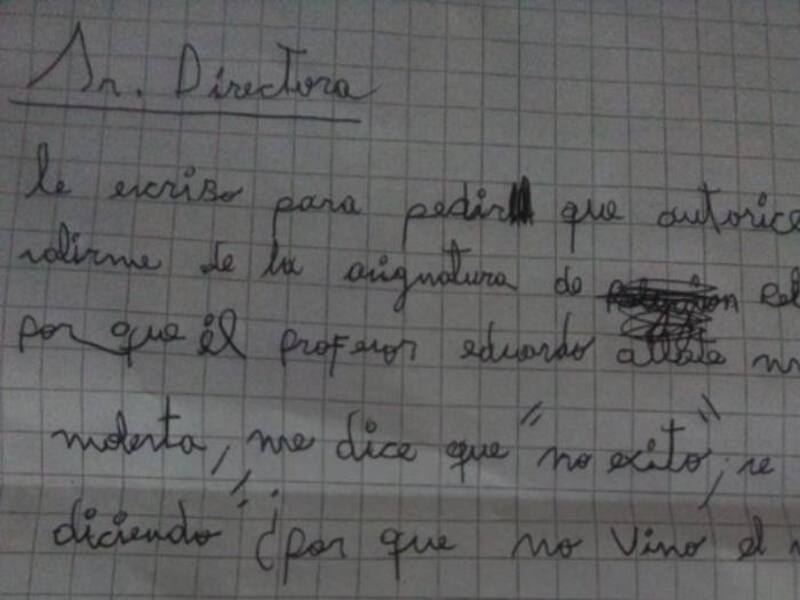 Sr. Directora
le escribo para pedir que autorice
salirme de la asignatura de Rel
por que él profesor eduardo m
molesta, me dice que "no exito", se
diciendo "¿por que no vino el